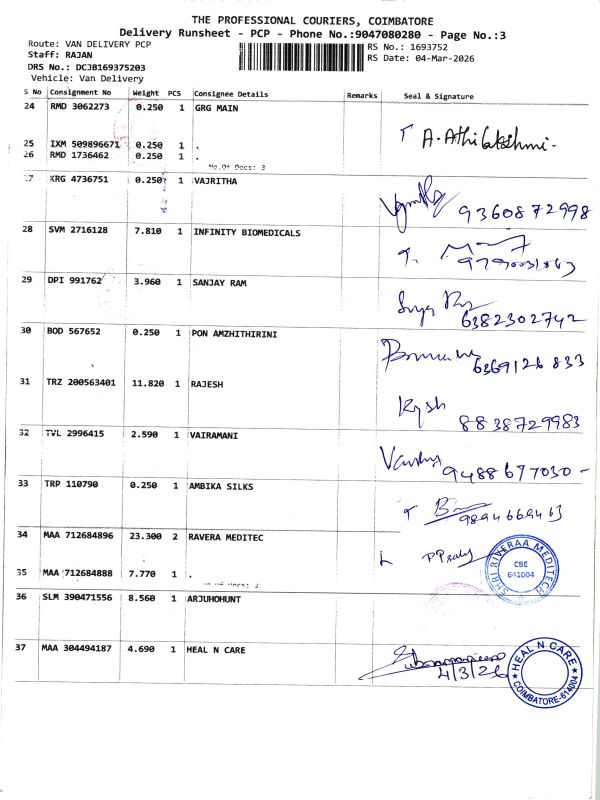 THE PROFESSIONAL COURIERS, COIMBATORE
Delivery Runsheet - PCP - Phone No.:9047080280 - Page No.:3
Route: VAN DELIVERY PCP
RS No.: 1693752
Staff: RAJAN
RS Date: 04-Mar-2026
DRS No.: DCJB169375203
Vehicle: Van Delivery
S No Consignment No Weight PCS Consignee Details Remarks Seal & Signature
24 RMD 3062273 0.250 1 GRG MAIN
A. Athilakshmi.
25 IXM 509896671 0.250 1 .
26 RMD 1736462 0.250 1 .
No.Of Docs: 3
KRG 4736751 0.250 1 VAJRITHA
9360872998
28 SVM 2716128 7.810 1 INFINITY BIOMEDICALS
29 DPI 991762 3.960 1 SANJAY RAM
6382302742
30 BOD 567652 0.250 1 PON AMZHITHIRINI
6369126833
31 TRZ 200563401 11.820 1 RAJESH
8838729983
32 TVL 2996415 2.590 1 VAIRAMANI
9488677030 -
33 TRP 110790 0.250 1 AMBIKA SILKS
9894669463
34 MAA 712684896 23.300 2 RAVERA MEDITEC
SHRI RIVERAA MEDITECH
CBE
641004
35 MAA 712684888 7.770 1 .
36 SLM 390471556 8.560 1 ARJUHOHUNT
37 MAA 304494187 4.690 1 HEAL N CARE
4/3/26
HEAL N CARE
COIMBATORE-614004